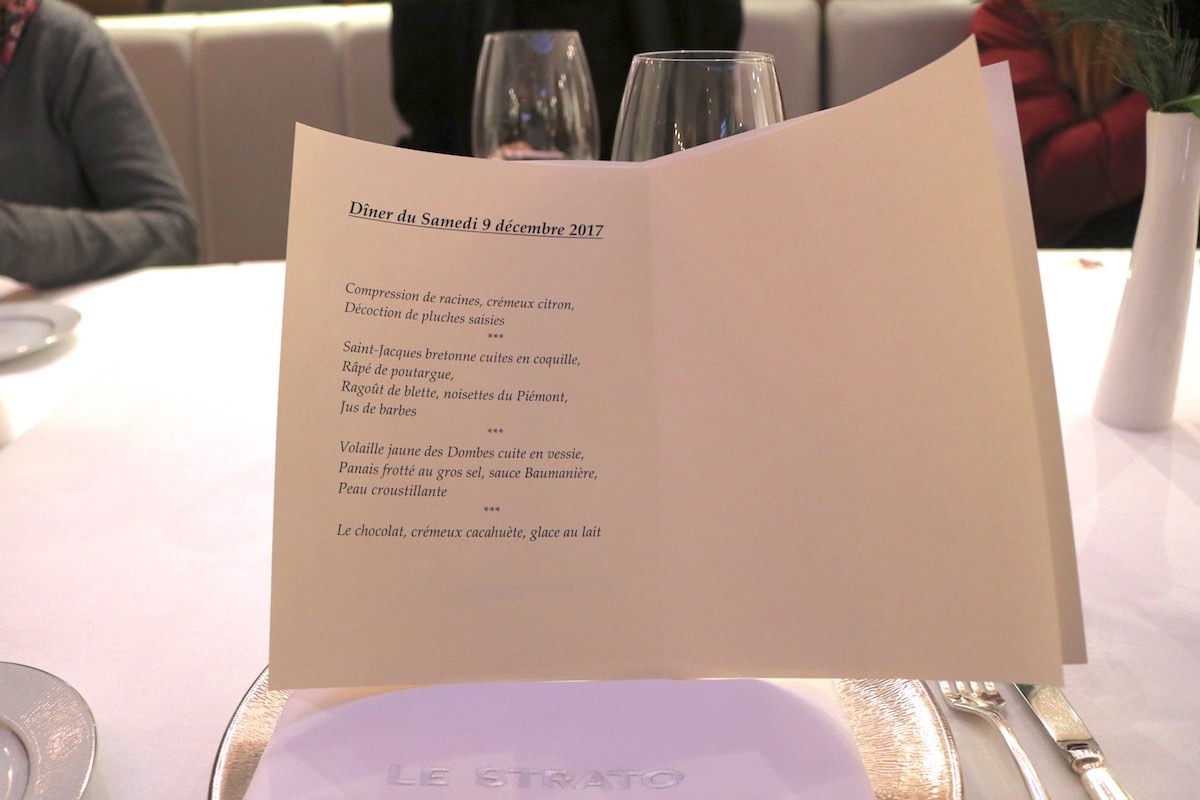 Dîner du Samedi 9 décembre 2017
Compression de racines, crémeux citron,
Décoction de pluches saisies
***
Saint-Jacques bretonne cuites en coquille,
Râpé de poutargue,
Ragoût de blette, noisettes du Piémont,
Jus de barbes
***
Volaille jaune des Dombes cuite en vessie,
Panais frotté au gros sel, sauce Baumanière,
Peau croustillante
***
Le chocolat, crémeux cacahuète, glace au lait
LE STRATO